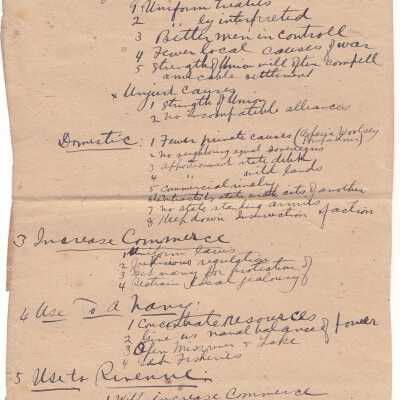 1 Uniform treaties
2 " ly interpreted
3 Better men in controll
4 Fewer local causes of war
5 Strength of Union will often compell
amicable settlement
Unjust causes
1 Strength of Union
2 no incompatible alliances
Domestic: 1 Fewer private causes
2 no neighboring equal sovereigns
3 apportionment state debt
4 " wild lands
5 Commercial rivalry
6 Contracts by state with cits of another
7 no state standing armies
8 Keep down Insurrection of action
3 Increase Commerce
1 Uniform laws
2 Judicious regulation
3 navy for protection of
4 Restrain local jealousy
4 Use To a navy:
1 Concentrate resources
2 Give us naval balance of power
3 Open Missouri & Lake
4 Fisheries
5 Use to Revenue:
1 Will increase Commerce